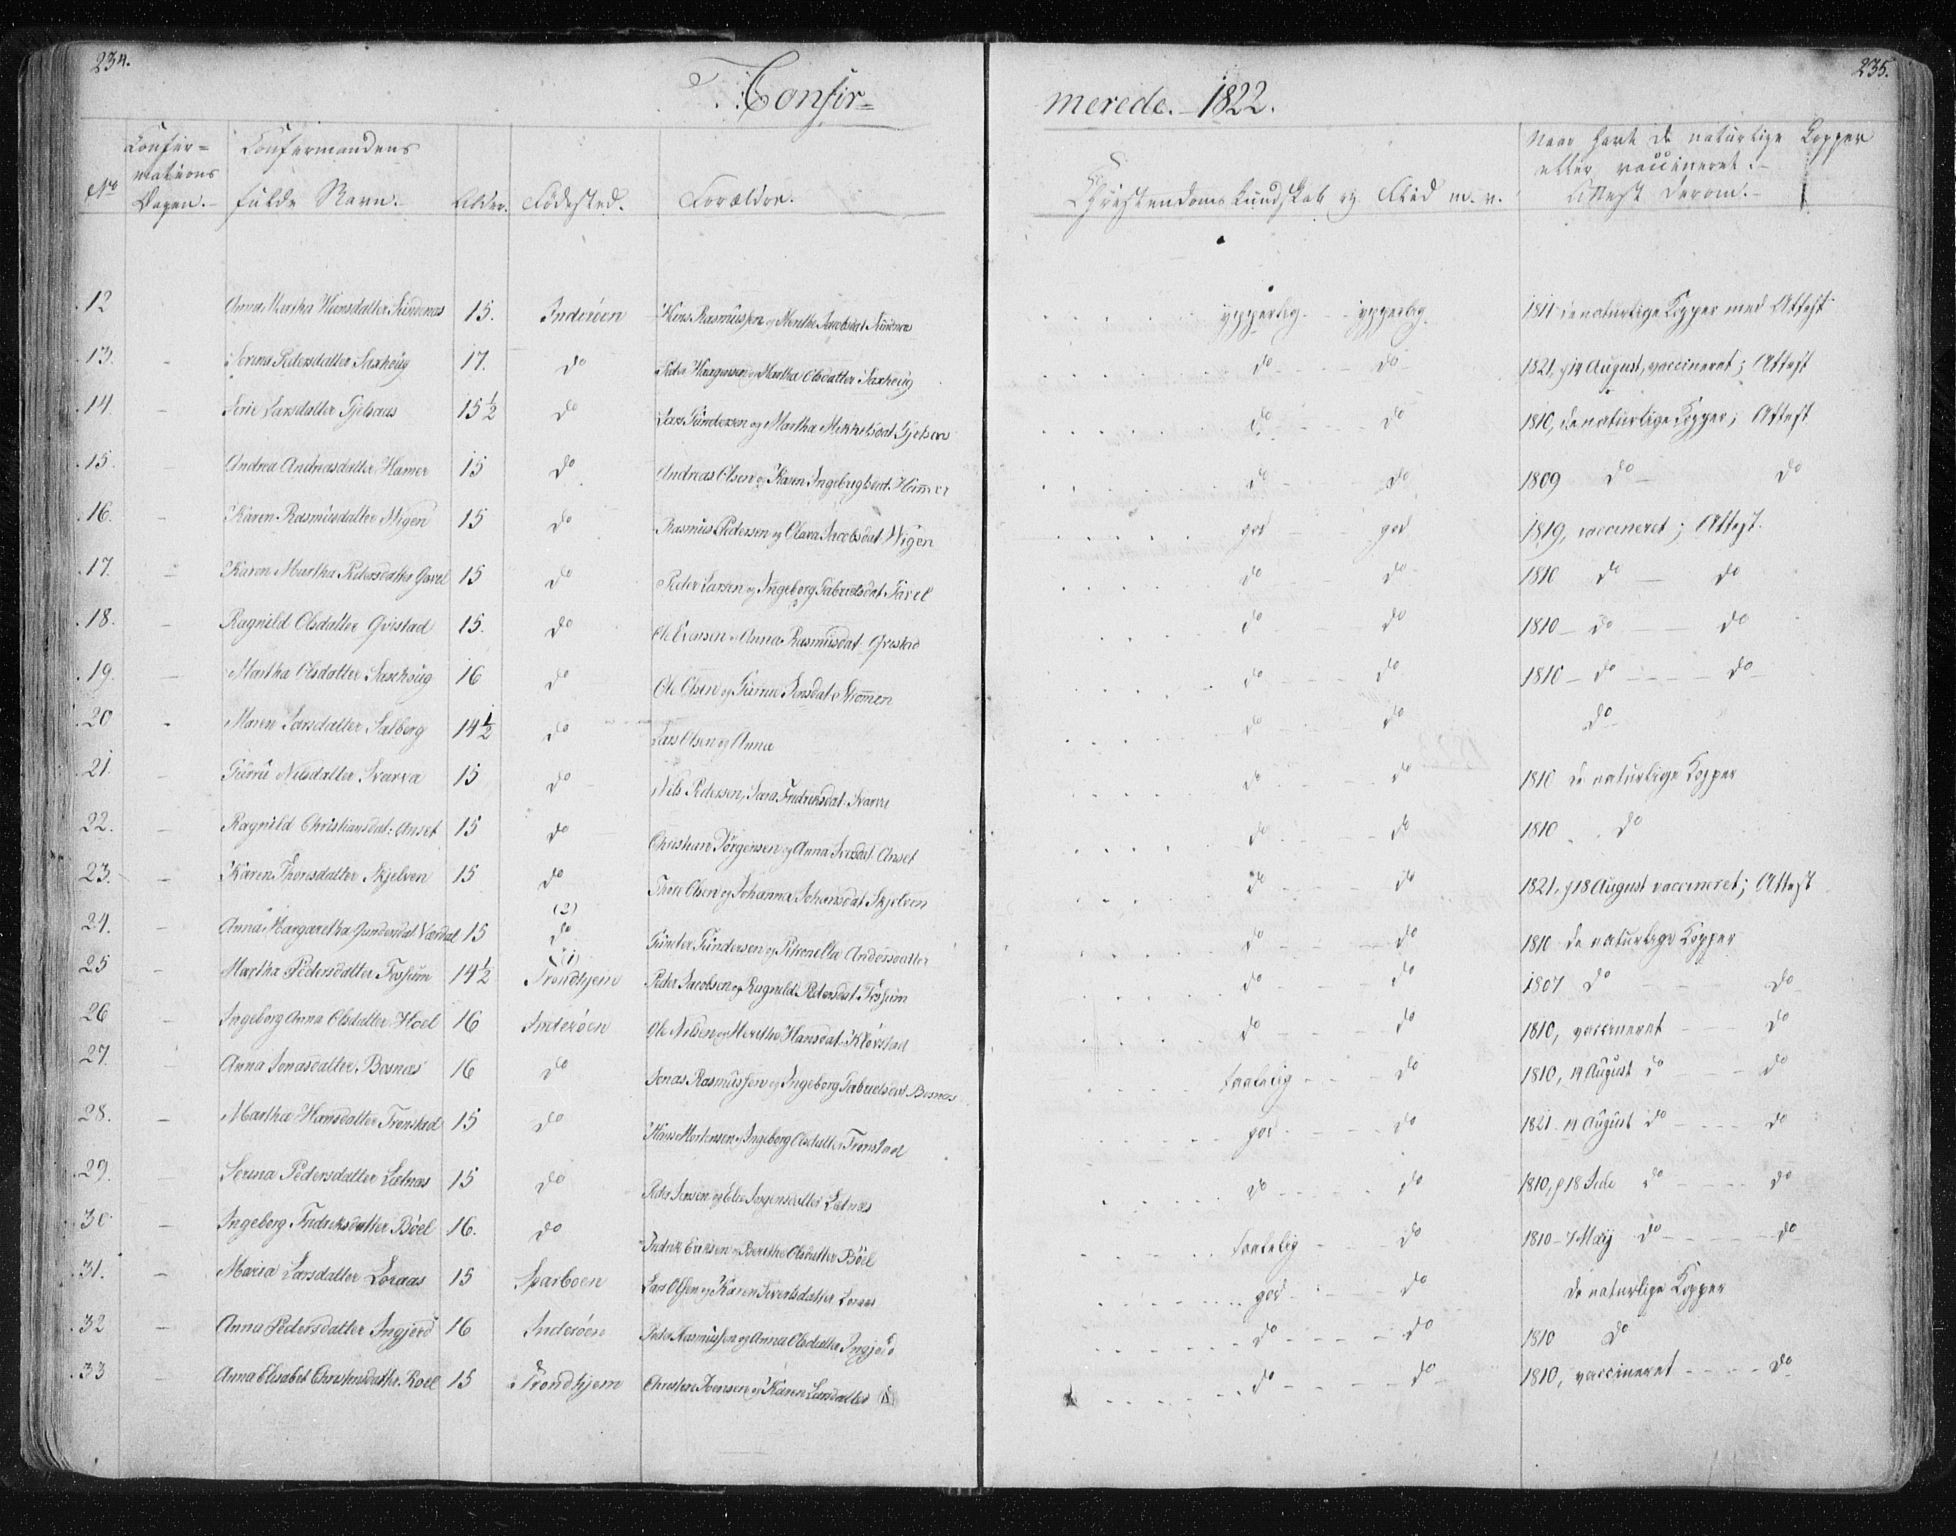 234.
Confir-
merede. 1822.
235.
No
Confir-
mations
Dagen.
Confirmandens
fulde Navn.
Alder.
Födested.
Forældre.
Christendoms Kundskab og Flid m. v.
Naar havt de naturlige Kopper
eller vaccineret.
Attest derom.
12 Anna Martha Hansdatter Sundnæs 15. Inderöen Hans Rasmussen og Merethe Jacobsdat Sundnæs ypperlig ypperlig 1811 de naturlige Kopper med Attest
13. - Serina Pedersdatter Saxhoug 17. do Peder Haagensen og Martha Olsdatter Saxhoug do do 1821, d 14 August, vaccineret; Attest
14. - Serie Larsdatter Gjelsnæs 15 1/2 do Lars Gundersen og Martha Mikkelsdat Gjelsnæs do do 1810, de naturlige Kopper; Attest
15. - Andrea Andreasdatter Hamer 15 do Andreas Olsen og Karen Ingebrigtsdat. Hammer do do 1809 do - do
16. - Karen Rasmusdatter Wigen 15 do Rasmus Pedersen og Olava Jacobsdat. Wigen god god 1819, vaccineret; Attest.
17. - Karen Martha Pedersdatter Gavel 15 do Peder Larsen og Ingeborg Gabrielsdat Gavel do do 1810 do - do
18. - Ragnild Olsdatter Qvistad 15. do Ole Evensen og Anna Rasmusdat. Qvistad do do 1810 - do - do
19. - Martha Olsdatter Saxhoug 16 do Ole Olsen og Guru Jensdat. Strømmen do do 1810 - do - do
20 - Maren Larsdatter Salberg 14 1/2 do Lars Olsen og Anna do do do
21. - Guru Nilsdatter Svarva 15 do Nils Pedersen, Sara Fredriksdat. Svarva do do 1810 de naturlige Kopper
22. - Ragnild Christiansdat. Anset 15 do Christian Jörgensen og Anna Iversdat. Anset do do 1810 do
23. - Karen Thoresdatter Skjelven 15 do Thore Olsen og Johanna Johansdat Skjelven do do 1821, d 18 August vaccineret; Attest
24. - Anna Margaretha Gundersdat. Værdal 15 (2) do Gunder Gundersen og Petronella Andersdatter do do 1810 de naturlige Kopper
25 - Martha Pedersdatter Fossum 14 1/2 (1) Trondhjem Peder Jacobsen og Ragnild Pedersdat Fossum do do 1807 do - do
26 - Ingeborg Anna Olsdatter Hoel 16 Inderöen Ole Nilsen og Merethe Hansdat. Klövstad do do 1810, vaccineret - do
27. - Anna Jonasdatter Bosnæs 16 do Jonas Rasmussen og Ingeborg Gabrielsdat Bosnæs taalelig do 1810, 14 August do - do
28. - Martha Hansdatter Tronstad 15 do Hans Mortensen og Ingeborg Olsdatter Tronstad god do 1821 - 14 August do - do
29. - Serina Pedersdatter Letnæs 15 do Peder Jensen og Elen Jørgensdatter Letnæs do do 1810, d 18 Jule do - do
30 - Ingeborg Fredriksdatter Böel 16. do Fredrik Eriksen og Berethe Olsdatter Böel taalelig do 1810 - 7 Maij do - do
31. - Maria Larsdatter Loraas 15 Sparboen Lars Olsen og Karen Sivertsdatter Loraas god do de naturlige Kopper
32 - Anna Pedersdatter Ingjerd 16 Inderöen Peder Rasmussen og Anna Olsdatter Ingjerd do do 1810 do
33 - Anna Elisabet Christensdatter Roel 15 Trondhjem Christen Svensen og Karen Larsdatter do do 1810, vaccineret - do